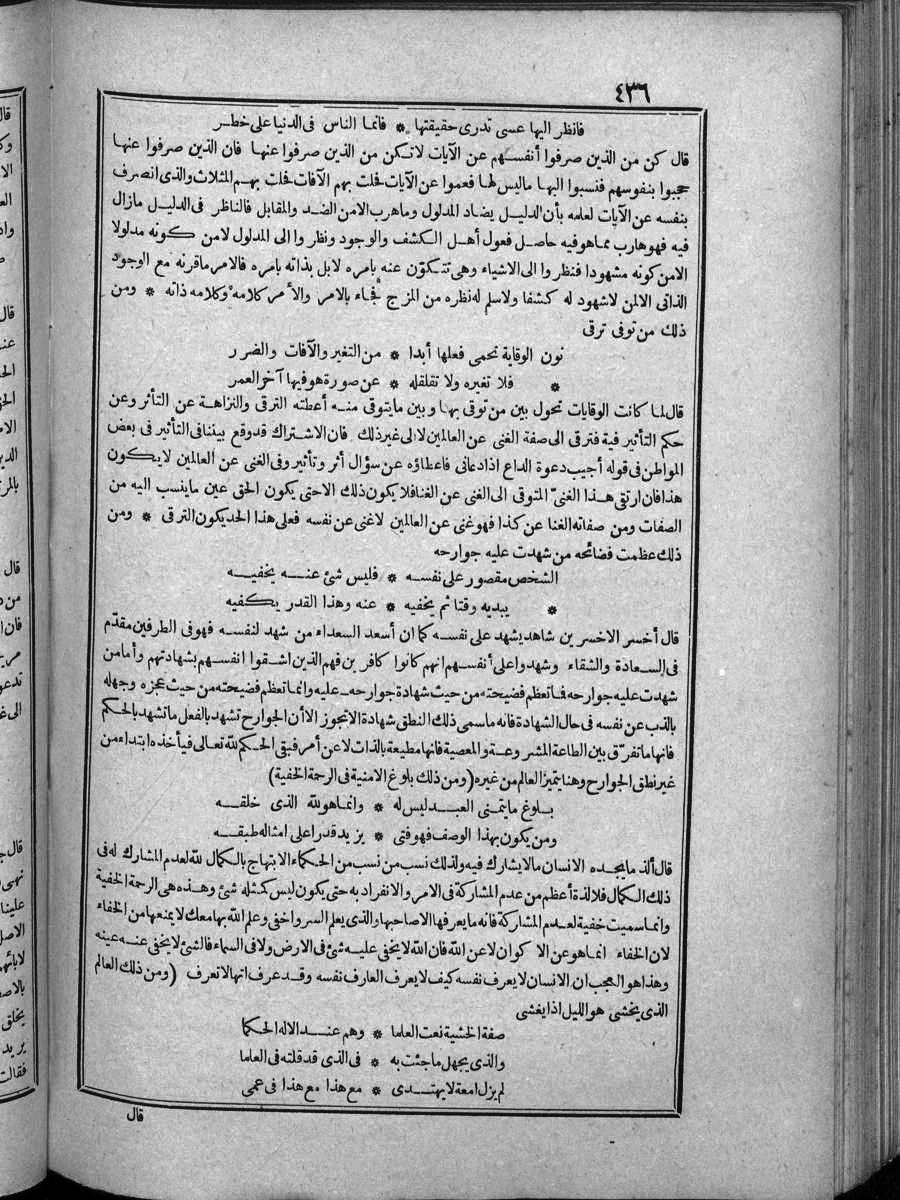 ٤٣٦
فانظر اليها عسى تدرى حقيقتها * فانما الناس فى الدنيا على خطر
قال كن من الذين صرفوا أنفسهم عن الآيات لا تكن من الذين صرفوا عنها فان الذين صرفوا عنها
حجبوا بنفوسهم فنسبوا اليها ما ليس لها فعموا عن الآيات فحلت بهم الآفات فحلت بهم المثلات والذى انصرف
بنفسه عن الآيات لعلمه بأن الدليل يضاد المدلول وما هرب الا من الضد والمقابل فالناظر فى الدليل مازال
فيه فهو هارب مما هو فيه حاصل فعول أهل الكشف والوجود ونظروا الى المدلول لا من كونه مدلولا
الا من كونه مشهودا فنظروا الى الاشياء وهى تتكوّن عنه بامره لا بل بذاته بامره فالامر ما قرنه مع الوجود
الذاتى الا لمن لا شهود له كشفا ولا سلم له نظره من المزج فجاء بالامر والأمر كلامه وكلامه ذاته * ومن
ذلك من توفى ترقى
نون الوقاية تحمى فعلها أبدا * من التغير والآفات والضرر
* فلا تغيره ولا تقلقله * عن صورة هو فيها آخر العمر
قال لما كانت الوقايات تحول بين من توقى بها وبين ما يتوقى منه أعطته الترقى والنزاهة عن التأثر وعن
حكم التأثير فيه فترقى الى صفة الغنى عن العالمين لا الى غير ذلك فان الاشتراك قد وقع بيننا فى التأثير فى بعض
المواطن فى قوله أجيب دعوة الداع اذا دعانى فاعطاؤه عن سؤال أثر وتأثير وفى الغنى عن العالمين لا يكون
هذا فان ارتقى هذا الغنىّ المتوقى الى الغنى عن الغنا فلا يكون ذلك الا حتى يكون الحق عين ما ينسب اليه من
الصفات ومن صفاته الغنا عن كذا فهو غنى عن العالمين لا غنى عن نفسه فعلى هذا الحد يكون الترقى * ومن
ذلك عظمت فضائحه من شهدت عليه جوارحه
الشخص مقصور على نفسه * فليس شئ عنه يخفيه
* يبديه وقتا ثم يخفيه * عنه وهذا القدر يكفيه
قال أخسر الاخسرين شاهد يشهد على نفسه كما ان أسعد السعداء من شهد لنفسه فهو فى الطرفين مقدّم
فى السعادة والشقاء وشهدوا على أنفسهم انهم كانوا كافرين فهم الذين اشقوا انفسهم بشهادتهم وأما من
شهدت عليه جوارحه فما تعظم فضيحته من حيث شهادة جوارحه عليه وانما تعظم فضيحته من حيث عجزه وجهله
بالذب عن نفسه فى حال الشهادة فانه ما سمى ذلك النطق شهادة الا تجوز الا أن الجوارح تشهد بالفعل ما تشهد بالحكم
فانها ما تفرّق بين الطاعة المشروعة والمعصية فانها مطيعة بالذات لا عن أمر فبقى الحكم لله تعالى فيأخذه ابتداء من
غير نطق الجوارح وهنا يتميز العالم من غيره (ومن ذلك بلوغ الامنية فى الرحمة الخفية)
بلوغ ما يتمنى العبد ليس له * وانما هو لله الذى خلقه
ومن يكون بهذا الوصف فهو فتى * يزيد قدرا على امثاله طبقه
قال ألذ ما يجده الانسان ما لا يشارك فيه ولذلك نسب من نسب من الحكماء الابتهاج بالكمال لله لعدم المشارك له فى
ذلك الكمال فلا لذة أعظم من عدم المشاركة فى الامر والانفراد به حتى يكون ليس كمثله شئ وهذه هى الرحمة الخفية
وانما سميت خفية لعدم المشاركة فانه ما يعرفها الا صاحبها والذى يعلم السر واخفى وعلم الله بها معك لا يمنعها من الخفاء
لان الخفاء انما هو عن الاكوان لا عن الله فان الله لا يخفى عليه شئ فى الارض ولا فى السماء فالشئ لا يخفى عنه عينه
وهذا هو العجب ان الانسان لا يعرف نفسه كيف لا يعرف العارف نفسه وقد عرف انها لا تعرف (ومن ذلك العالم
الذى يخشى هو الليل اذا يغشى
صفة الخشية نعت العلما * وهم عند الاله الحكما
والذى يجهل ما جئت به * فى الذى قد قلته فى العلما
لم يزل امعة لا يهتدى * مع هذا مع هذا فى عمى
قال